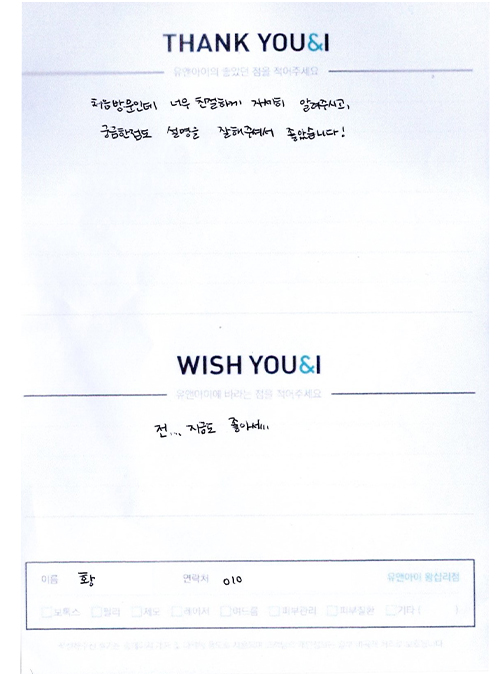 THANK YOU&I
유앤아이의 좋았던 점을 적어주세요
처음방문인데 너무 친절하게 자세히 알려주시고,
궁금한점도 설명을 잘해주셔서 좋았습니다!
WISH YOU&I
유앤아이에 바라는 점을 적어주세요
전... 지금도 좋아서...
이름 황 연락처 010 유앤아이 왕십리점
보톡스 필러 제모 레이저 여드름 피부관리 피부질환 기타 ( )